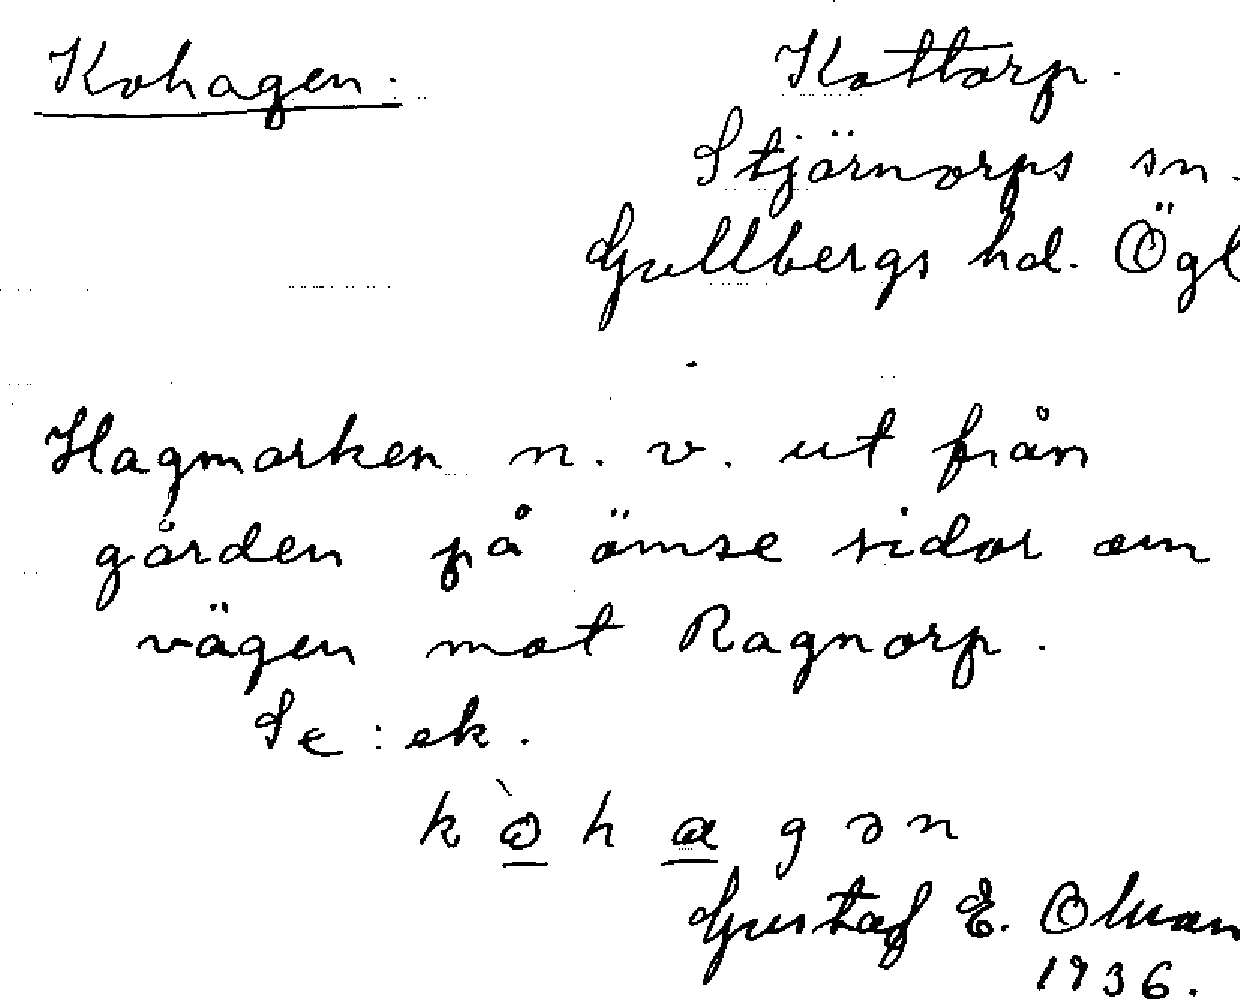 Kohagen.
Kottorp.
Stjärnorps sn.
Gullbergs hd. Ögl
Hagmarken n. v. ut från
gården på ömse sidor om
vägen mot Ragnorp.
Se: ek.
k ò h a g ə n
Gustaf E. Olsson
1936.